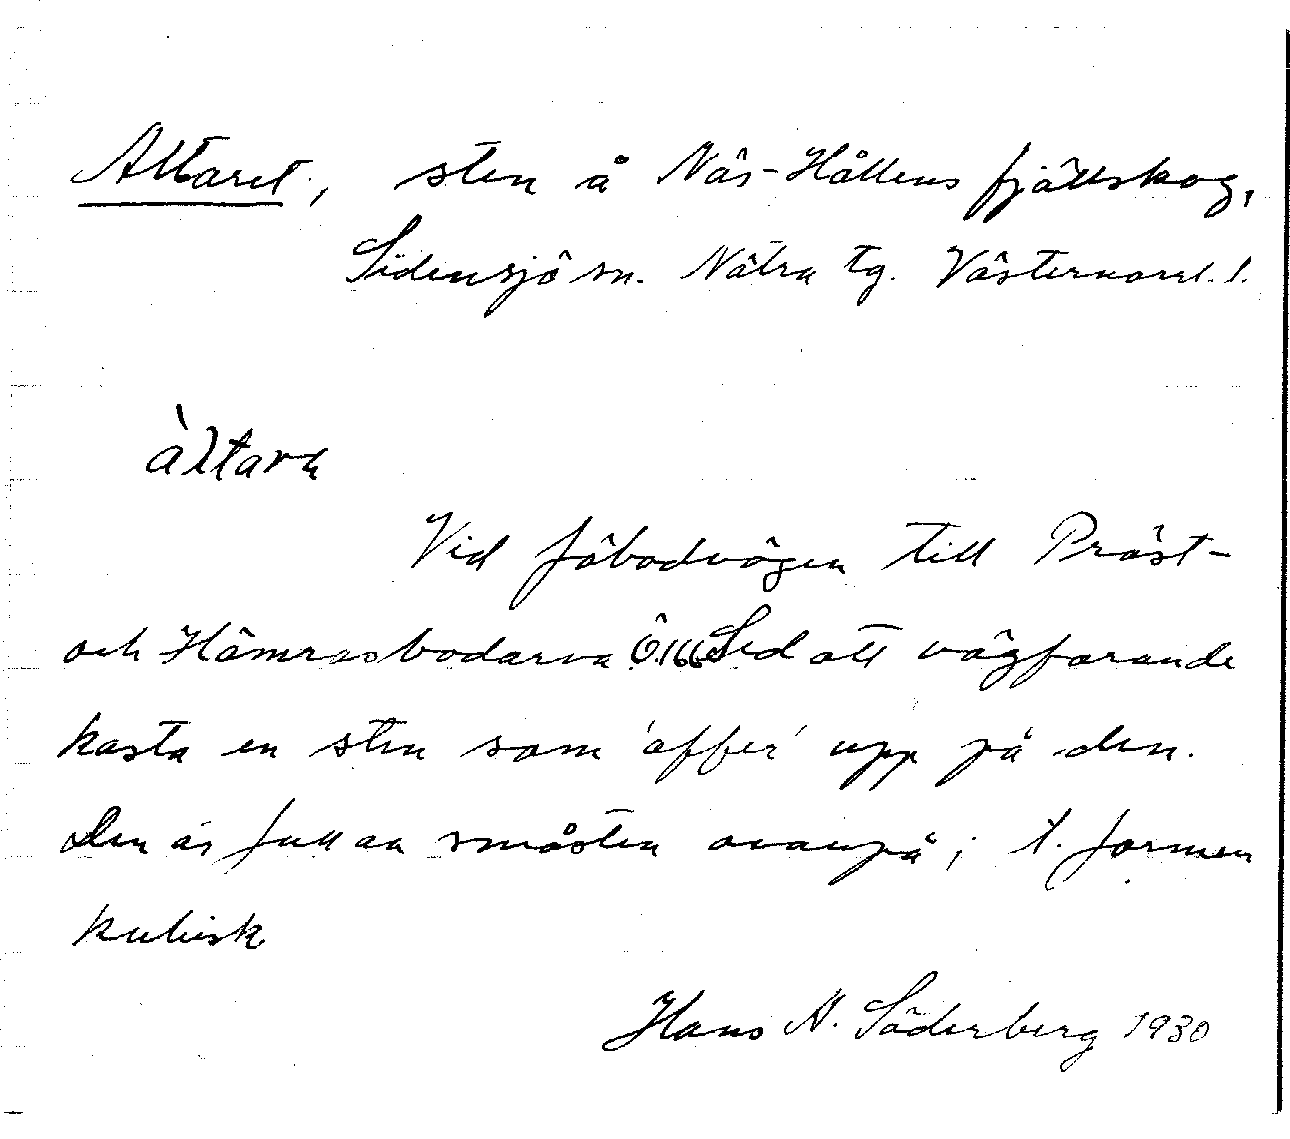 Altaret, sten å Näs-Hållens fjällskog,
Sidensjö sn. Nätra tg. Västernorrl. l.
àltarn
Vid fäbodvägen till Präst-
och Hämrasbodarna Ö.166 Sed att vägfarande
kasta en sten som 'offer' upp på den.
Den är full av småsten ovanpå; t. formen
kubisk
Hans A. Söderberg 1930